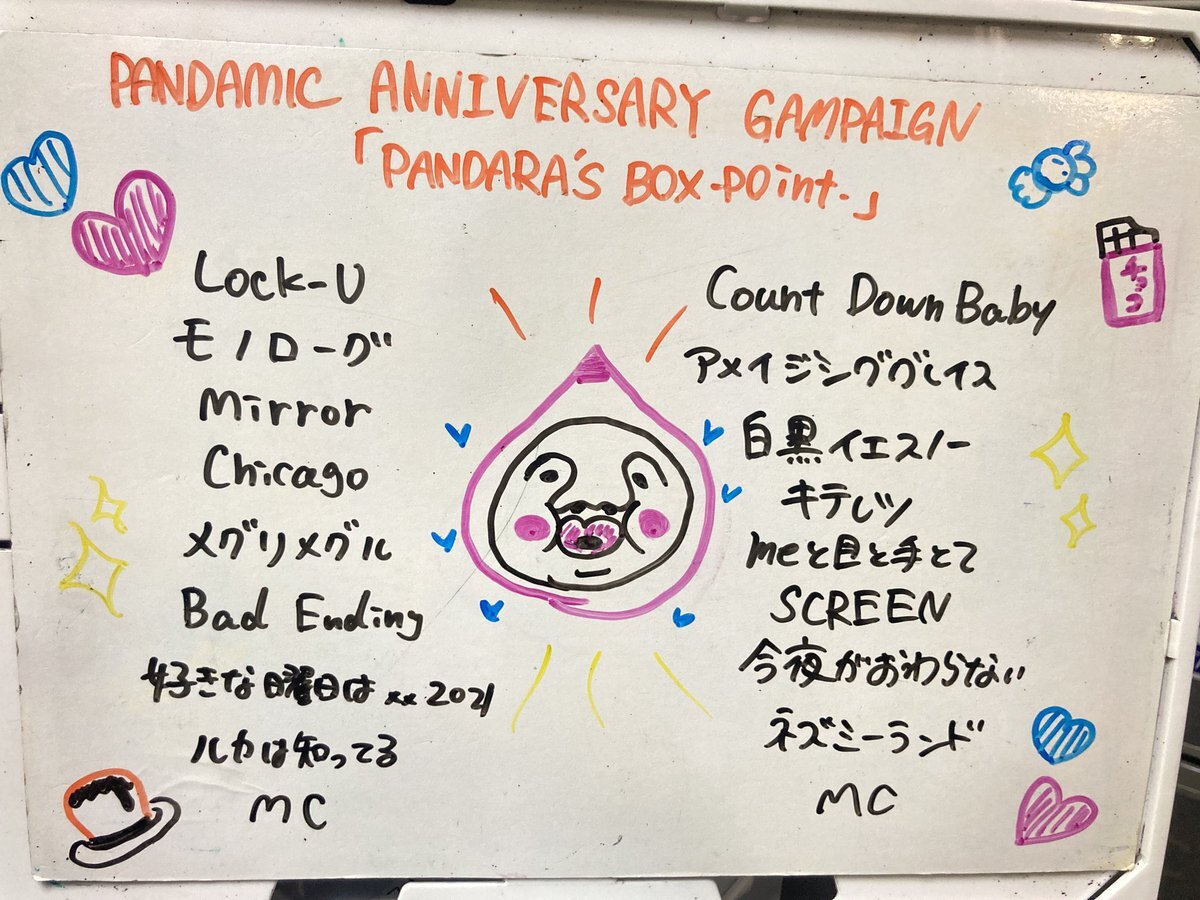 PANDAMIC ANNIVERSARY GAMPAIGN
「PANDARA'S BOX-POint-」
Lock-U
モノローグ
Mirror
Chicago
メグリメグル
Bad Ending
好きな曜日は xx 2021
ルカは知ってる
MC
Count Down Baby
アメイジンググレイス
白黒イエスノー
キテレツ
meと目と手とて
SCREEN
今夜がおわらない
ネズミーランド
MC
チョコ